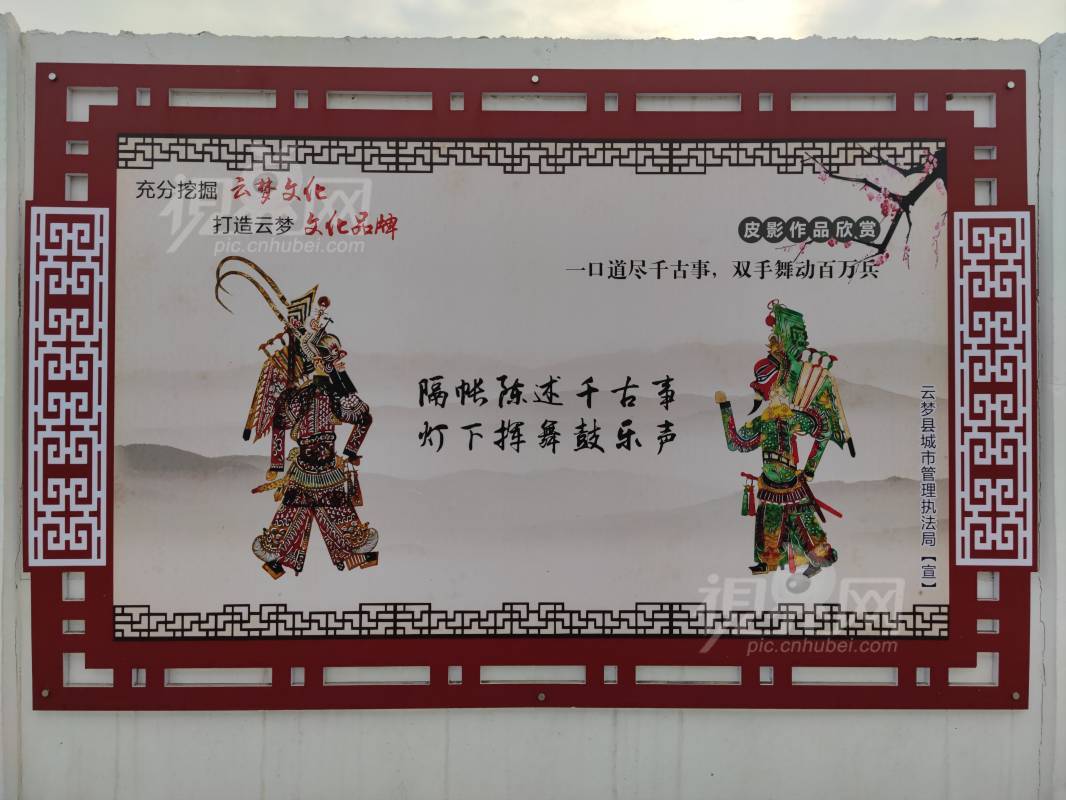 充分挖掘 云梦文化
打造云梦 文化品牌
皮影作品欣赏
一口道尽千古事，双手舞动百万兵
隔帐陈述千古事
灯下挥舞鼓乐声
云梦县城市管理执法局【宣】
视界网
pic.cnhubei.com
视界网
pic.cnhubei.com